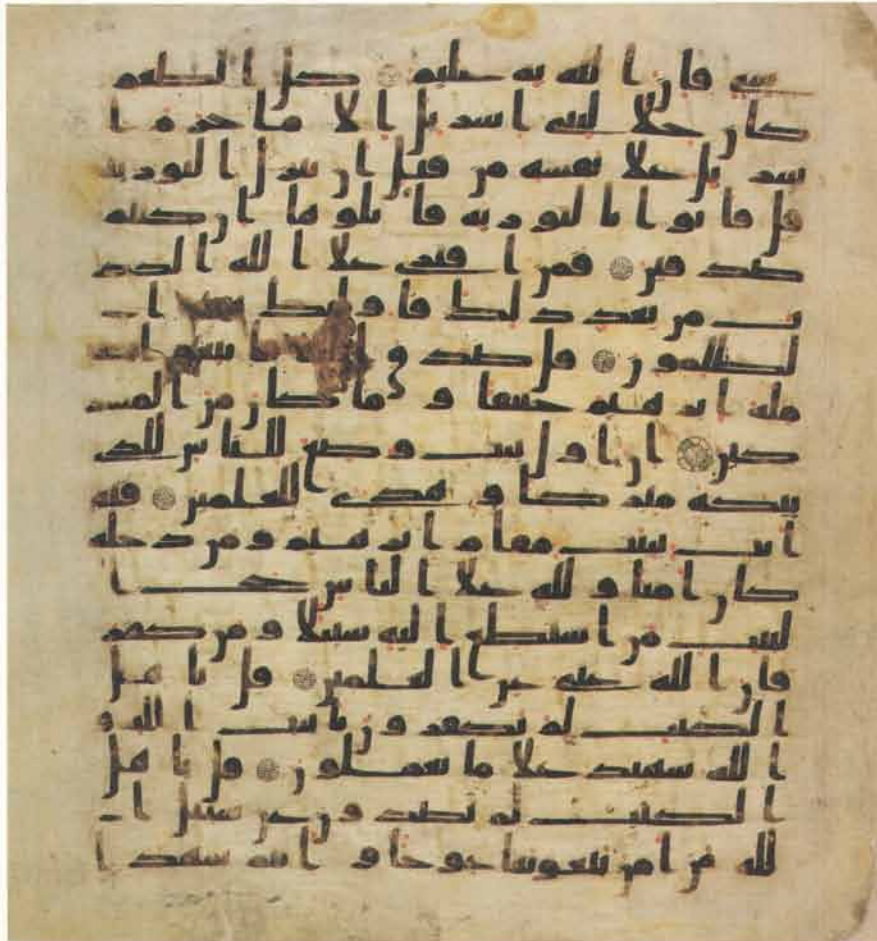 شى فان الله به عليم كل الطعم
كان حلا لبنى اسريل الا ما حرم ا
سريل علا نفسه من قبل ان تنزل التورية
قل فاتوا بالتورية فاتلوها ان كنتم
صدقين فمن افترى علا الله الكذ
ب من بعد ذلك فاولئك هم ا
لظلمون قل صدق الله فاتبعوا
ملة ابرهيم حنيفا وما كان من المشر
كين ان اول بيت وضع للناس للذى
ببكة مبركا وهدى للعلمين فيه
ايت بينت مقام ابرهيم ومن دخله
كان امنا ولله علا الناس حج ا
لبيت من استطع اليه سبيلا ومن كفر
فان الله غنى عن العلمين قل ياهل
الكتب لم تكفرون بايت الله و
الله شهيد علا ما تعملون قل ياهل
الكتب لم تصدون عن سبيل ا
لله من امن تبغونها عوجا وانتم شهدا